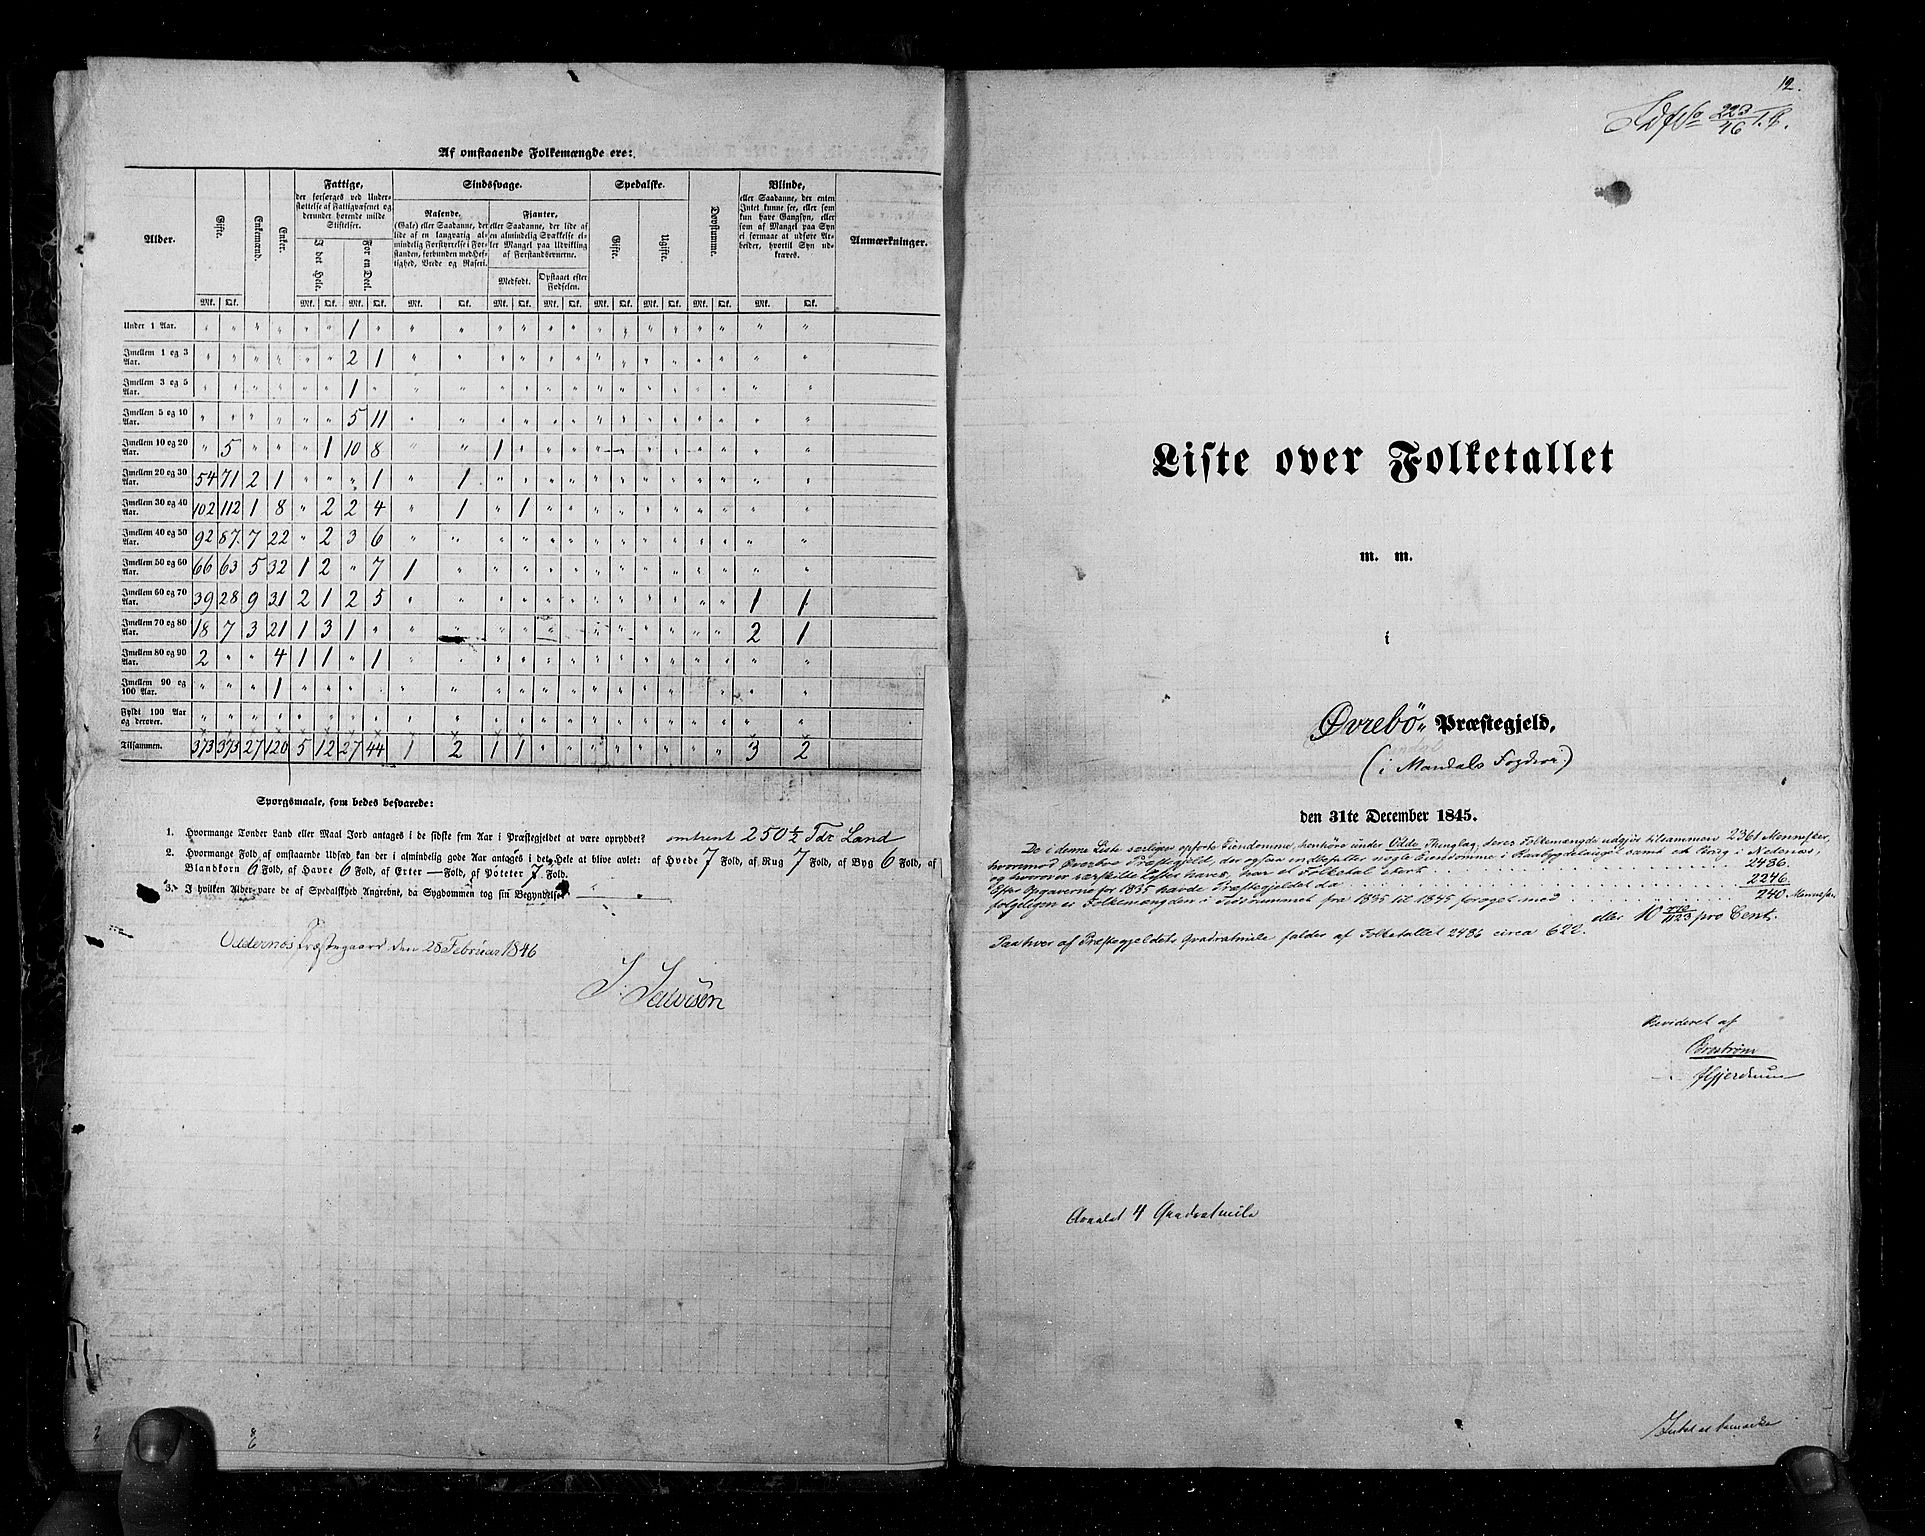 Af omstaaende Folkemængde ere:
Alder. Gifte. Enkemænd. Enker. Fattige, der forsørges ved Understøttelse af Fattigvæsenet og derunder hørende milde Stiftelser. Sindssvage. Spedalske. Døvstumme. Blinde, eller Saadanne, der enten Intet kunne see, eller som kun have Gangsyn, eller som af Mangel paa Syn ei formaae at udføre Arbeider, hvortil Syn udkræves. Anmærkninger.
I det Hele. For en Deel. Rasende, (Gale) eller Saadanne, der lide af en langvarig almindelig Forstyrrelse i Forstanden, forbunden med Heftighed, Vrede og Raseri. Fjanter, eller Saadanne, der lide af en almindelig Svækkelse eller Mangel paa Udvikling af Forstandsevnerne. Gifte. Ugifte.
Medfødt. Opstaaet efter Fødselen.
Mk. Qk. Mk. Qk. Mk. Qk. Mk. Qk. Mk. Qk. Mk. Qk. Mk. Qk. Mk. Qk. Mk. Qk. Mk. Qk.
Under 1 Aar. " " " " " " 1 " " " " " " " " " " " " " " "
Imellem 1 og 3 Aar. " " " " " " 2 1 " " " " " " " " " " " " " "
Imellem 3 og 5 Aar. " " " " " " 1 " " " " " " " " " " " " " " "
Imellem 5 og 10 Aar. " " " " " " 5 11 " " " " " " " " " " " " " "
Imellem 10 og 20 Aar. " 5 " " " 1 10 8 " " 1 " " " " " " " " " " "
Imellem 20 og 30 Aar. 54 71 2 1 " " " 1 " 1 " " " " " " " " " " " "
Imellem 30 og 40 Aar. 102 112 1 8 " 2 2 4 " 1 " 1 " " " " " " " " " "
Imellem 40 og 50 Aar. 92 87. 7 22 " 2 3 6 " " " " " " " " " " " " " "
Imellem 50 og 60 Aar. 66 63 5 32 1 2 " 7 1 " " " " " " " " " " " " "
Imellem 60 og 70 Aar. 39 28 9 31 2 1 2 5 " " " " " " " " " " " " 1 1
Imellem 70 og 80 Aar. 18 7 3 21 1 3 1 " " " " " " " " " " " " " 2 1
Imellem 80 og 90 Aar. 2 " " 4 1 1 " 1 " " " " " " " " " " " " " "
Imellem 90 og 100 Aar. " " " 1 " " " " " " " " " " " " " " " " " "
Fyldt 100 Aar og derover. " " " " " " " " " " " " " " " " " " " " " "
Tilsammen. 373 373 27 120 5 12 27 44 1 2 1 1 " " " " " " " " 3 2
Spørgsmaale, som bedes besvarede:
1. Hvormange Tønder Land eller Maal Jord antages i de sidste fem Aar i Præstegjeldet at være opryddet? omtrent 250 ½ Tdr Land
2. Hvormange Fold af omstaaende Udsæd kan der i almindelig gode Aar antages i det Hele at blive avlet: af Hvede 7 Fold, af Rug 7 Fold, af Byg 6 Fold, af
Blandkorn 6 Fold, af Havre 6 Fold, af Erter — Fold, af Poteter 7 Fold.
3. I hvilken Alder vare de af Spedalskhed Angrebne, da Sygdommen tog sin Begyndelse?
Oddernes Præstegaard den 28 Februar 1846
12.
223/46
Liste over Folketallet
m. m.
i
Øvrebö Præstegjeld,
(i Mandals Fogderi)
den 31te December 1845.
De i denne Liste særligen opførte Eiendomme, henhöre under Odde Thinglag, deres Folkemængde udgjör tilsammen 2361 Mennesker,
hvorimod Øvrebø Præstegjeld, der ogsaa indbefatter nogle Eiendomme i Raabygdelauget samt et Brug i Nedenæs,
og hvorover særskilte Lister haves, har et Folketal stort 2486.
Efter Opgaverne for 1835 havde Præstegjeldet da 2246.
følgeligen er Folkemængden i Tidsrummet fra 1835 til 1845 foröget med 240 Mennesker
eller 10 pro Cent.
Paa hver af Præstegjeldets Qvadratmile falder af Folketallet 2486 circa 622.
Revideret af
Brøstrøm
Hjerdrum
Arealet 4 Quadratmile